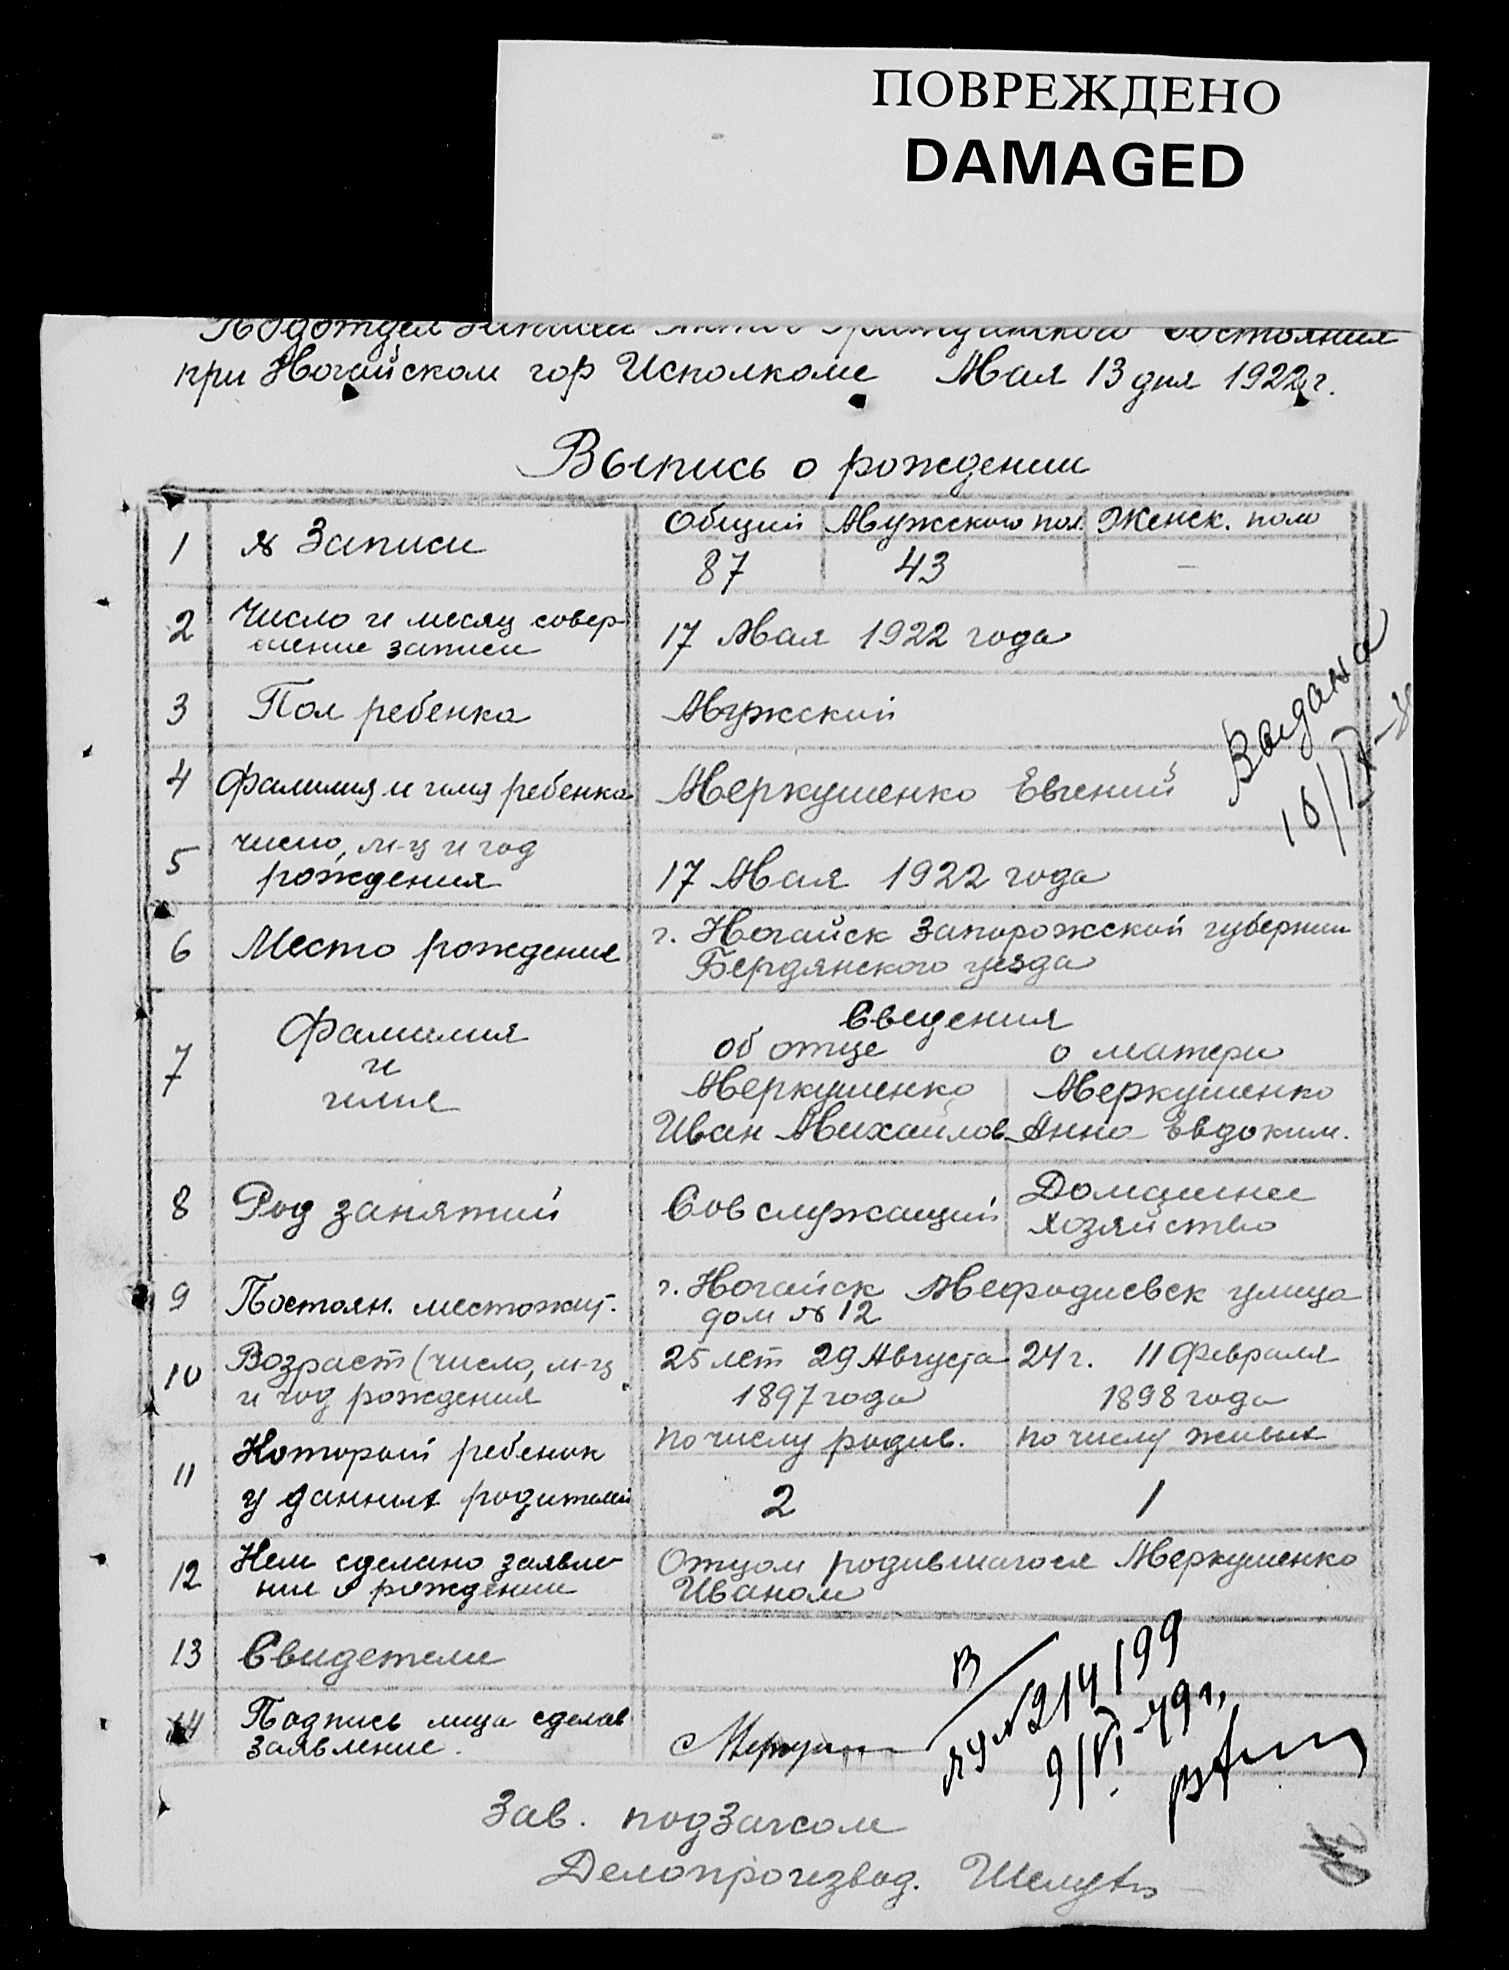 ПОВРЕЖДЕНО
DAMAGED
Подотдел Записи Актов Гражданского Состояния
при Ногайском гор Исполкоме Мая 13 дня 1922 г.
Выпись о рождении
1 № Записи Общий Мужского пол. Женск. пола
87 43 –
2 Число и месяц совер-
шение записи 17 Мая 1922 года
3 Пол ребенка Мужский
4 Фамилия и имя ребенка Меркушенко Евгений
5 число, м-ц и год
рождения 17 Мая 1922 года
6 Место рождение г. Ногайск Запорожской губернии
Бердянского уезда
7 Фамилия
и
имя
Сведения
об отце о матери
Меркушенко Меркушенко
Иван Михайлов Анна Евдоким.
8 Род занятий Совслужащий Домашнее
хозяйство
9 Постоян. местожит. г. Ногайск Мефодиевск улица
дом № 12
10 Возраст (число, м-ц
и год рождения
25 лет 29 Августа 24 г. 11 Февраля
1897 года 1898 года
11 Которой ребенок
у данных родителей
по числу родив. по числу живых
2 1
12 Кем сделано заявле-
ние о рождении
Отцом родившагося Меркушенко
Иваном
13 Свидетели
14 Подпись лица сделав
заявление.
Зав. подзагсом
Делопроизвод.
Выдана
№ 214199
9/VI-49 г.